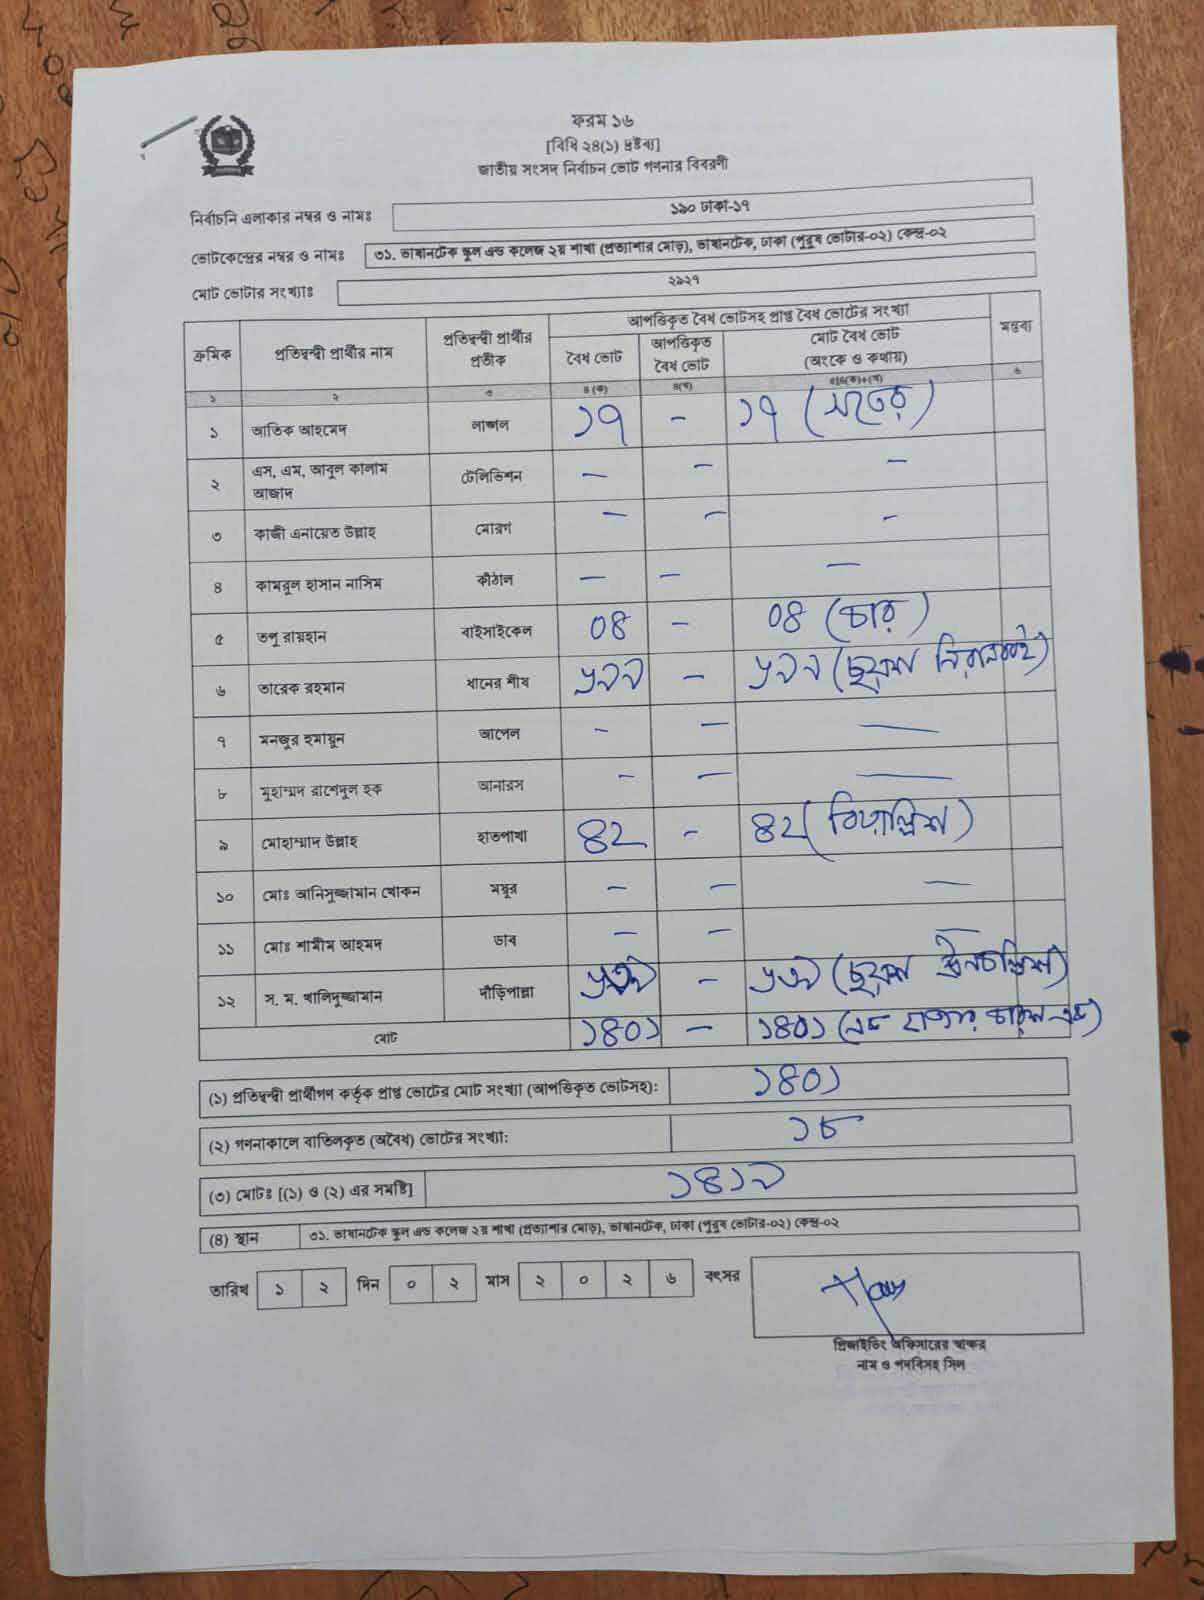 ফরম ১৬
[বিধি ২৪(১) দ্রষ্টব্য]
জাতীয় সংসদ নির্বাচন ভোট গণনার বিবরণী
নির্বাচনি এলাকার নম্বর ও নামঃ ১৯০ ঢাকা-১৭
ভোটকেন্দ্রের নম্বর ও নামঃ ৩১. ভাষানটেক স্কুল এন্ড কলেজ ২য় শাখা (প্রত্যাশার মোড়), ভাষানটেক, ঢাকা (পুরুষ ভোটার-০২) কেন্দ্র-০২
মোট ভোটার সংখ্যাঃ ২৯২৭
ক্রমিক প্রতিদ্বন্দ্বী প্রার্থীর নাম প্রতিদ্বন্দ্বী প্রার্থীর প্রতীক আপত্তিকৃত বৈধ ভোটসহ প্রাপ্ত বৈধ ভোটের সংখ্যা মন্তব্য
বৈধ ভোট আপত্তিকৃত বৈধ ভোট মোট বৈধ ভোট (অংকে ও কথায়)
১ ২ ৩ ৪(ক) ৪(খ) ৬
১ আতিক আহমেদ লাঙ্গল ১৭ - ১৭ (সতের)
২ এস, এম, আবুল কালাম আজাদ টেলিভিশন - - -
৩ কাজী এনায়েত উল্লাহ মোরগ - - -
৪ কামরুল হাসান নাসিম কাঁঠাল - - -
৫ তপু রায়হান বাইসাইকেল ০৪ - ০৪ (চার)
৬ তারেক রহমান ধানের শীষ ৬৯৯ - ৬৯৯ (ছয়শ নিরানব্বই)
৭ মনজুর হুমায়ুন আপেল - - -
৮ মুহাম্মদ রাশেদুল হক আনারস - - -
৯ মোহাম্মাদ উল্লাহ হাতপাখা ৪২ - ৪২ (বিয়াল্লিশ)
১০ মোঃ আনিসুজ্জামান খোকন ময়ূর - - -
১১ মোঃ শামীম আহমদ ডাব - - -
১২ স. ম. খালিদুজ্জামান দাঁড়িপাল্লা ৬৩৯ - ৬৩৯ (ছয়শ ঊনচল্লিশ)
মোট ১৪০১ - ১৪০১ (এক হাজার চারশ এক)
(১) প্রতিদ্বন্দ্বী প্রার্থীগণ কর্তৃক প্রাপ্ত ভোটের মোট সংখ্যা (আপত্তিকৃত ভোটসহ): ১৪০১
(২) গণনাকালে বাতিলকৃত (অবৈধ) ভোটের সংখ্যা: ১৮
(৩) মোটঃ [(১) ও (২) এর সমষ্টি] ১৪১৯
(৪) স্থান ৩১. ভাষানটেক স্কুল এন্ড কলেজ ২য় শাখা (প্রত্যাশার মোড়), ভাষানটেক, ঢাকা (পুরুষ ভোটার-০২) কেন্দ্র-০২
তারিখ ১ ২ দিন ০ ২ মাস ২ ০ ২ ৬ বৎসর
প্রিজাইডিং অফিসারের স্বাক্ষর
নাম ও পদবিসহ সিল